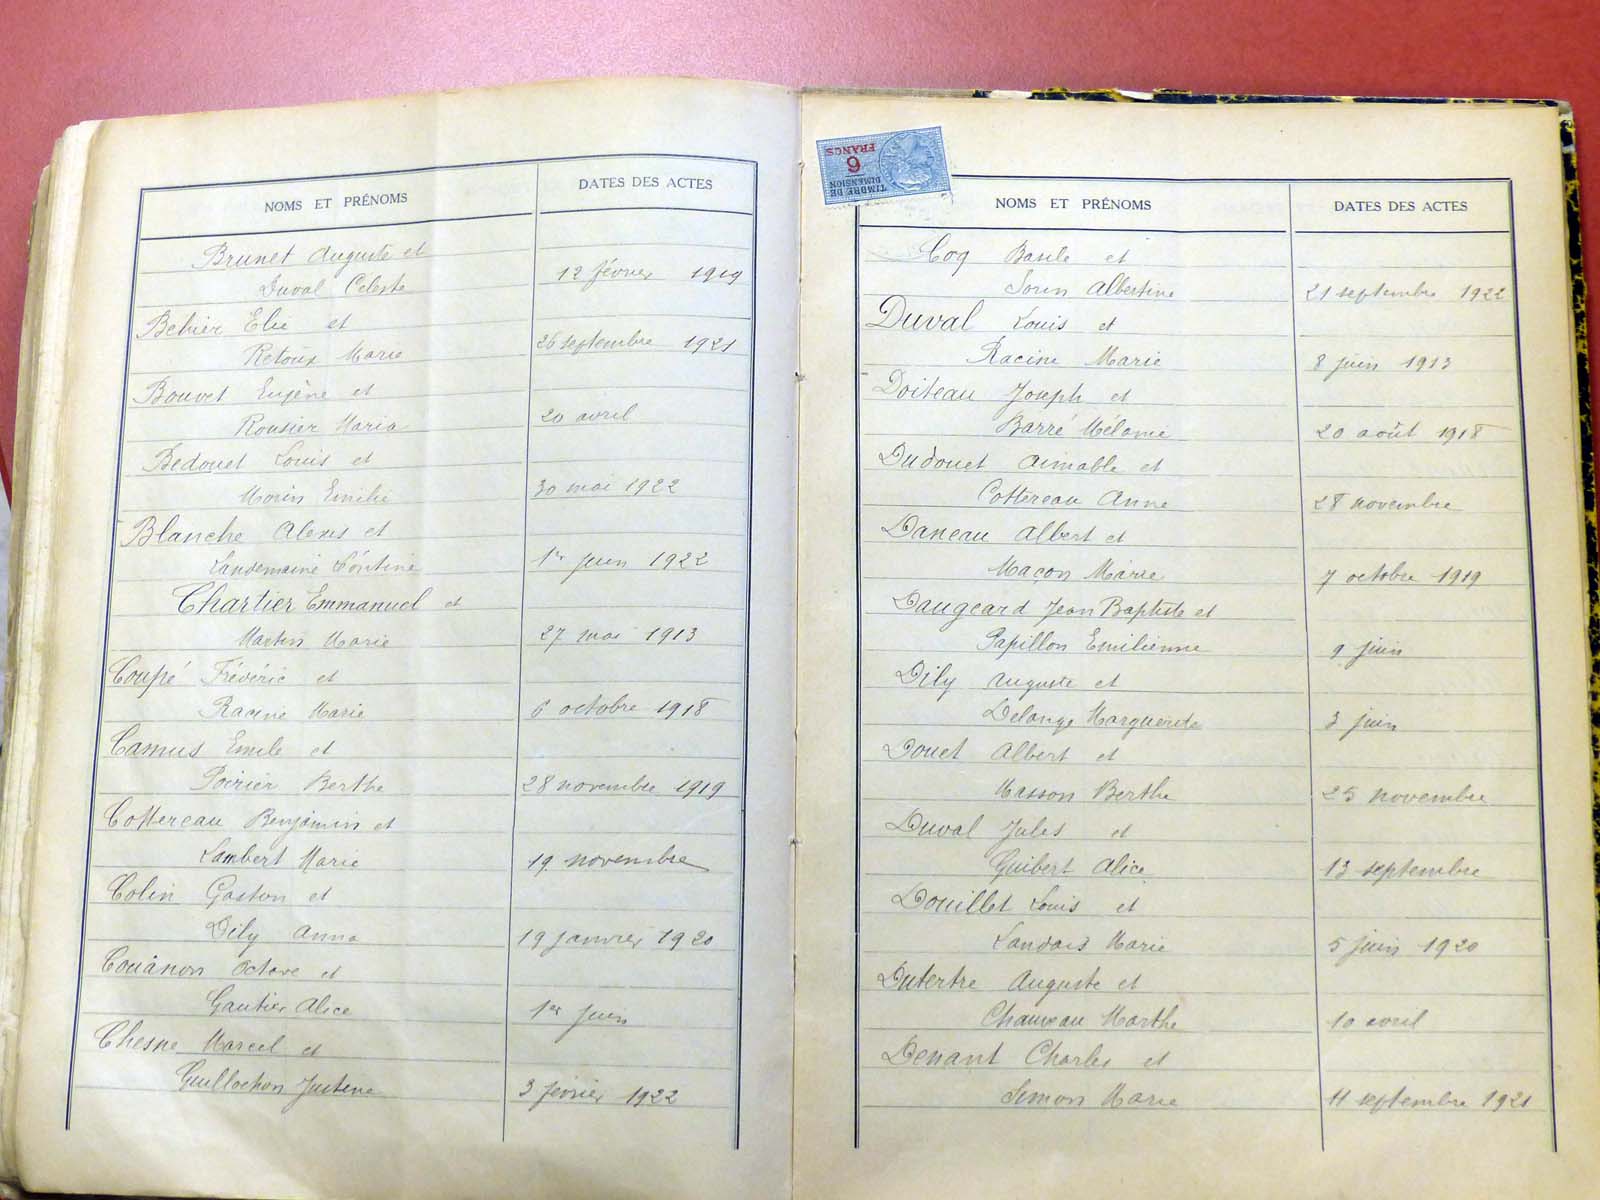 NOMS ET PRÉNOMS
DATES DES ACTES
Brunet Auguste et
Duval Celeste 12 février 1919
Behier Elie et
Retoux Marie 26 septembre 1921
Bouvet Eugène et
Rousier Maria 20 avril
Bedouet Louis et
Morin Emilie 30 mai 1922
Blanche Alexis et
Landemaine Léontine 1er juin 1922
Chartier Emmanuel et
Martin Marie 27 mai 1913
Coupé Frédéric et
Racine Marie 6 octobre 1918
Camus Emile et
Poirier Berthe 28 novembre 1919
Cottereau Benjamin et
Lambert Marie 19 novembre
Colin Gaston et
Dily Anna 19 janvier 1920
Couânon Octave et
Gautier Alice 1er juin
Chesne Marcel et
Guillochon Justine 3 février 1922
TIMBRE DE
DIMENSION
6
FRANCS
NOMS ET PRÉNOMS
DATES DES ACTES
Coq Basile et
Sorin Albertine 21 septembre 1922
Duval Louis et
Racine Marie 8 juin 1913
Doiteau Joseph et
Barré Mélanie 20 août 1918
Dudouet Aimable et
Cottereau Anne 28 novembre
Daneau Albert et
Maçon Marie 7 octobre 1919
Daugeard Jean Baptiste et
Papillon Emilienne 9 juin
Dily Auguste et
Delange Marguerite 3 juin
Douet Albert et
Masson Berthe 25 novembre
Duval Jules et
Guibert Alice 13 septembre
Douillet Louis et
Landais Marie 5 juin 1920
Dutertre Auguste et
Chauveau Marthe 10 avril
Denant Charles et
Simon Marie 11 septembre 1921